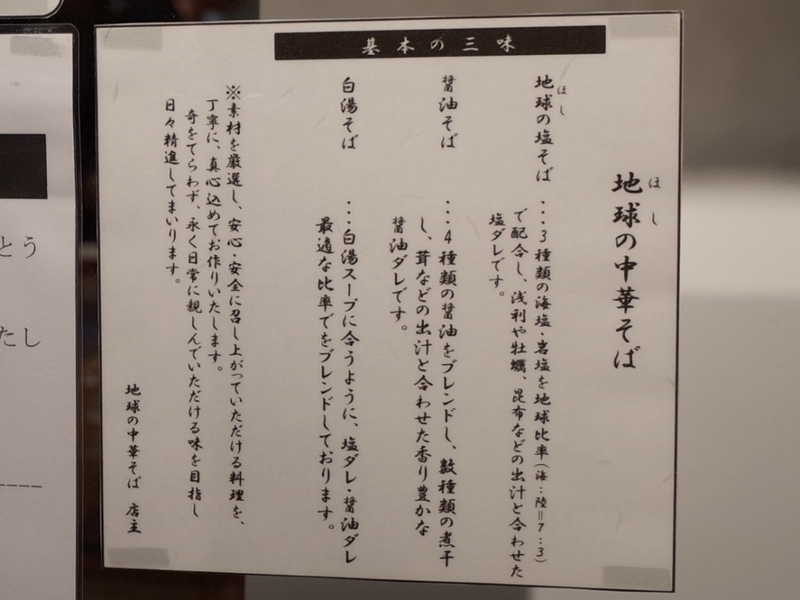 基本の三味
地球の中華そば
ほし
地球の塩そば
ほし
・・・3種類の海塩・岩塩を地球比率(海:陸=7:3)
で配合し、浅利や牡蠣、昆布などの出汁と合わせた
塩ダレです。
醤油そば
・・・4種類の醤油をブレンドし、数種類の煮干
し、茸などの出汁と合わせた香り豊かな
醤油ダレです。
白湯そば
・・・白湯スープに合うように、塩ダレ・醤油ダレ
最適な比率でをブレンドしております。
※素材を厳選し、安心・安全に召し上がっていただける料理を、
丁寧に、真心込めてお作りいたします。
奇をてらわず、永く日常に親しんでいただける味を目指し
日々精進してまいります。
地球の中華そば 店主
とう
たし